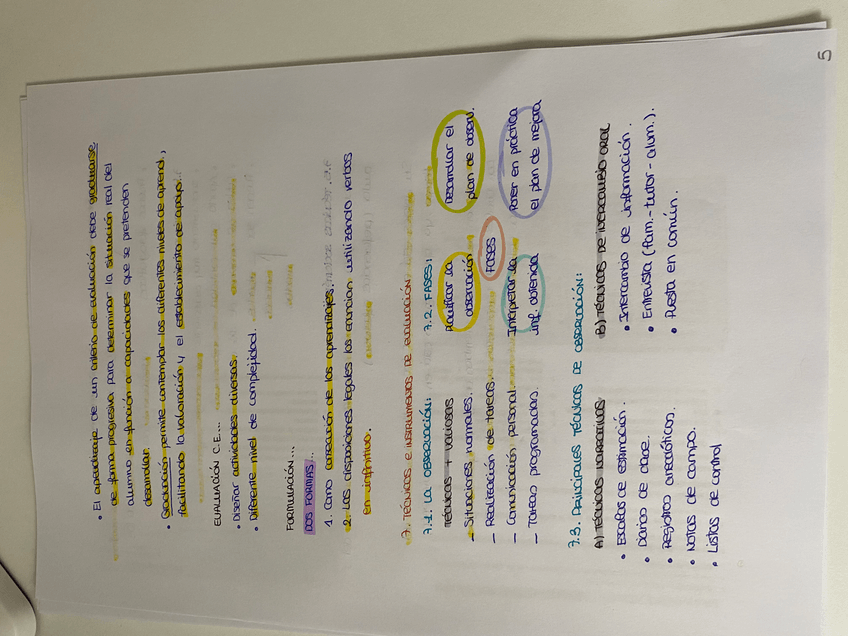 • El aprendizaje de un criterio de evaluación debe graduarse
de forma progresiva para determinar la situación real del
alumno en función a capacidades que se pretenden
desarrollar.
• Graduación permite contemplar los diferentes niveles de aprend.,
facilitando la valoración y el establecimiento de apoyo.
EVALUACIÓN C.E...
• Diseñar actividades diversas
• Diferente nivel de complejidad.
FORMULACIÓN...
DOS FORMAS...
1. Como consecución de los aprendizajes.
2. Las disposiciones legales los enuncian utilizando verbos
en infinitivo.
7. TÉCNICAS E INSTRUMENTOS DE EVALUACIÓN
7.1. LA OBSERVACIÓN:
TÉCNICAS + VALIOSAS
- Situaciones normales.
- Realización de tareas.
- Comunicación personal.
- Tareas programadas.
7.2. FASES:
Planificar la
observación
Desarrollar el
plan de observ.
FASES
Interpretar la
inf. obtenida
Poner en práctica
el plan de mejora
7.3. PRINCIPALES TÉCNICAS DE OBSERVACIÓN:
A) TÉCNICAS NARRATIVAS
• Escalas de estimación.
• Diarios de clase.
• Registros anecdóticos.
• Notas de campo.
• Listas de control
B) TÉCNICAS DE INTERCAMBIO ORAL
• Intercambio de información.
• Entrevista (fam.-tutor-alum.).
• Puesta en común.
5